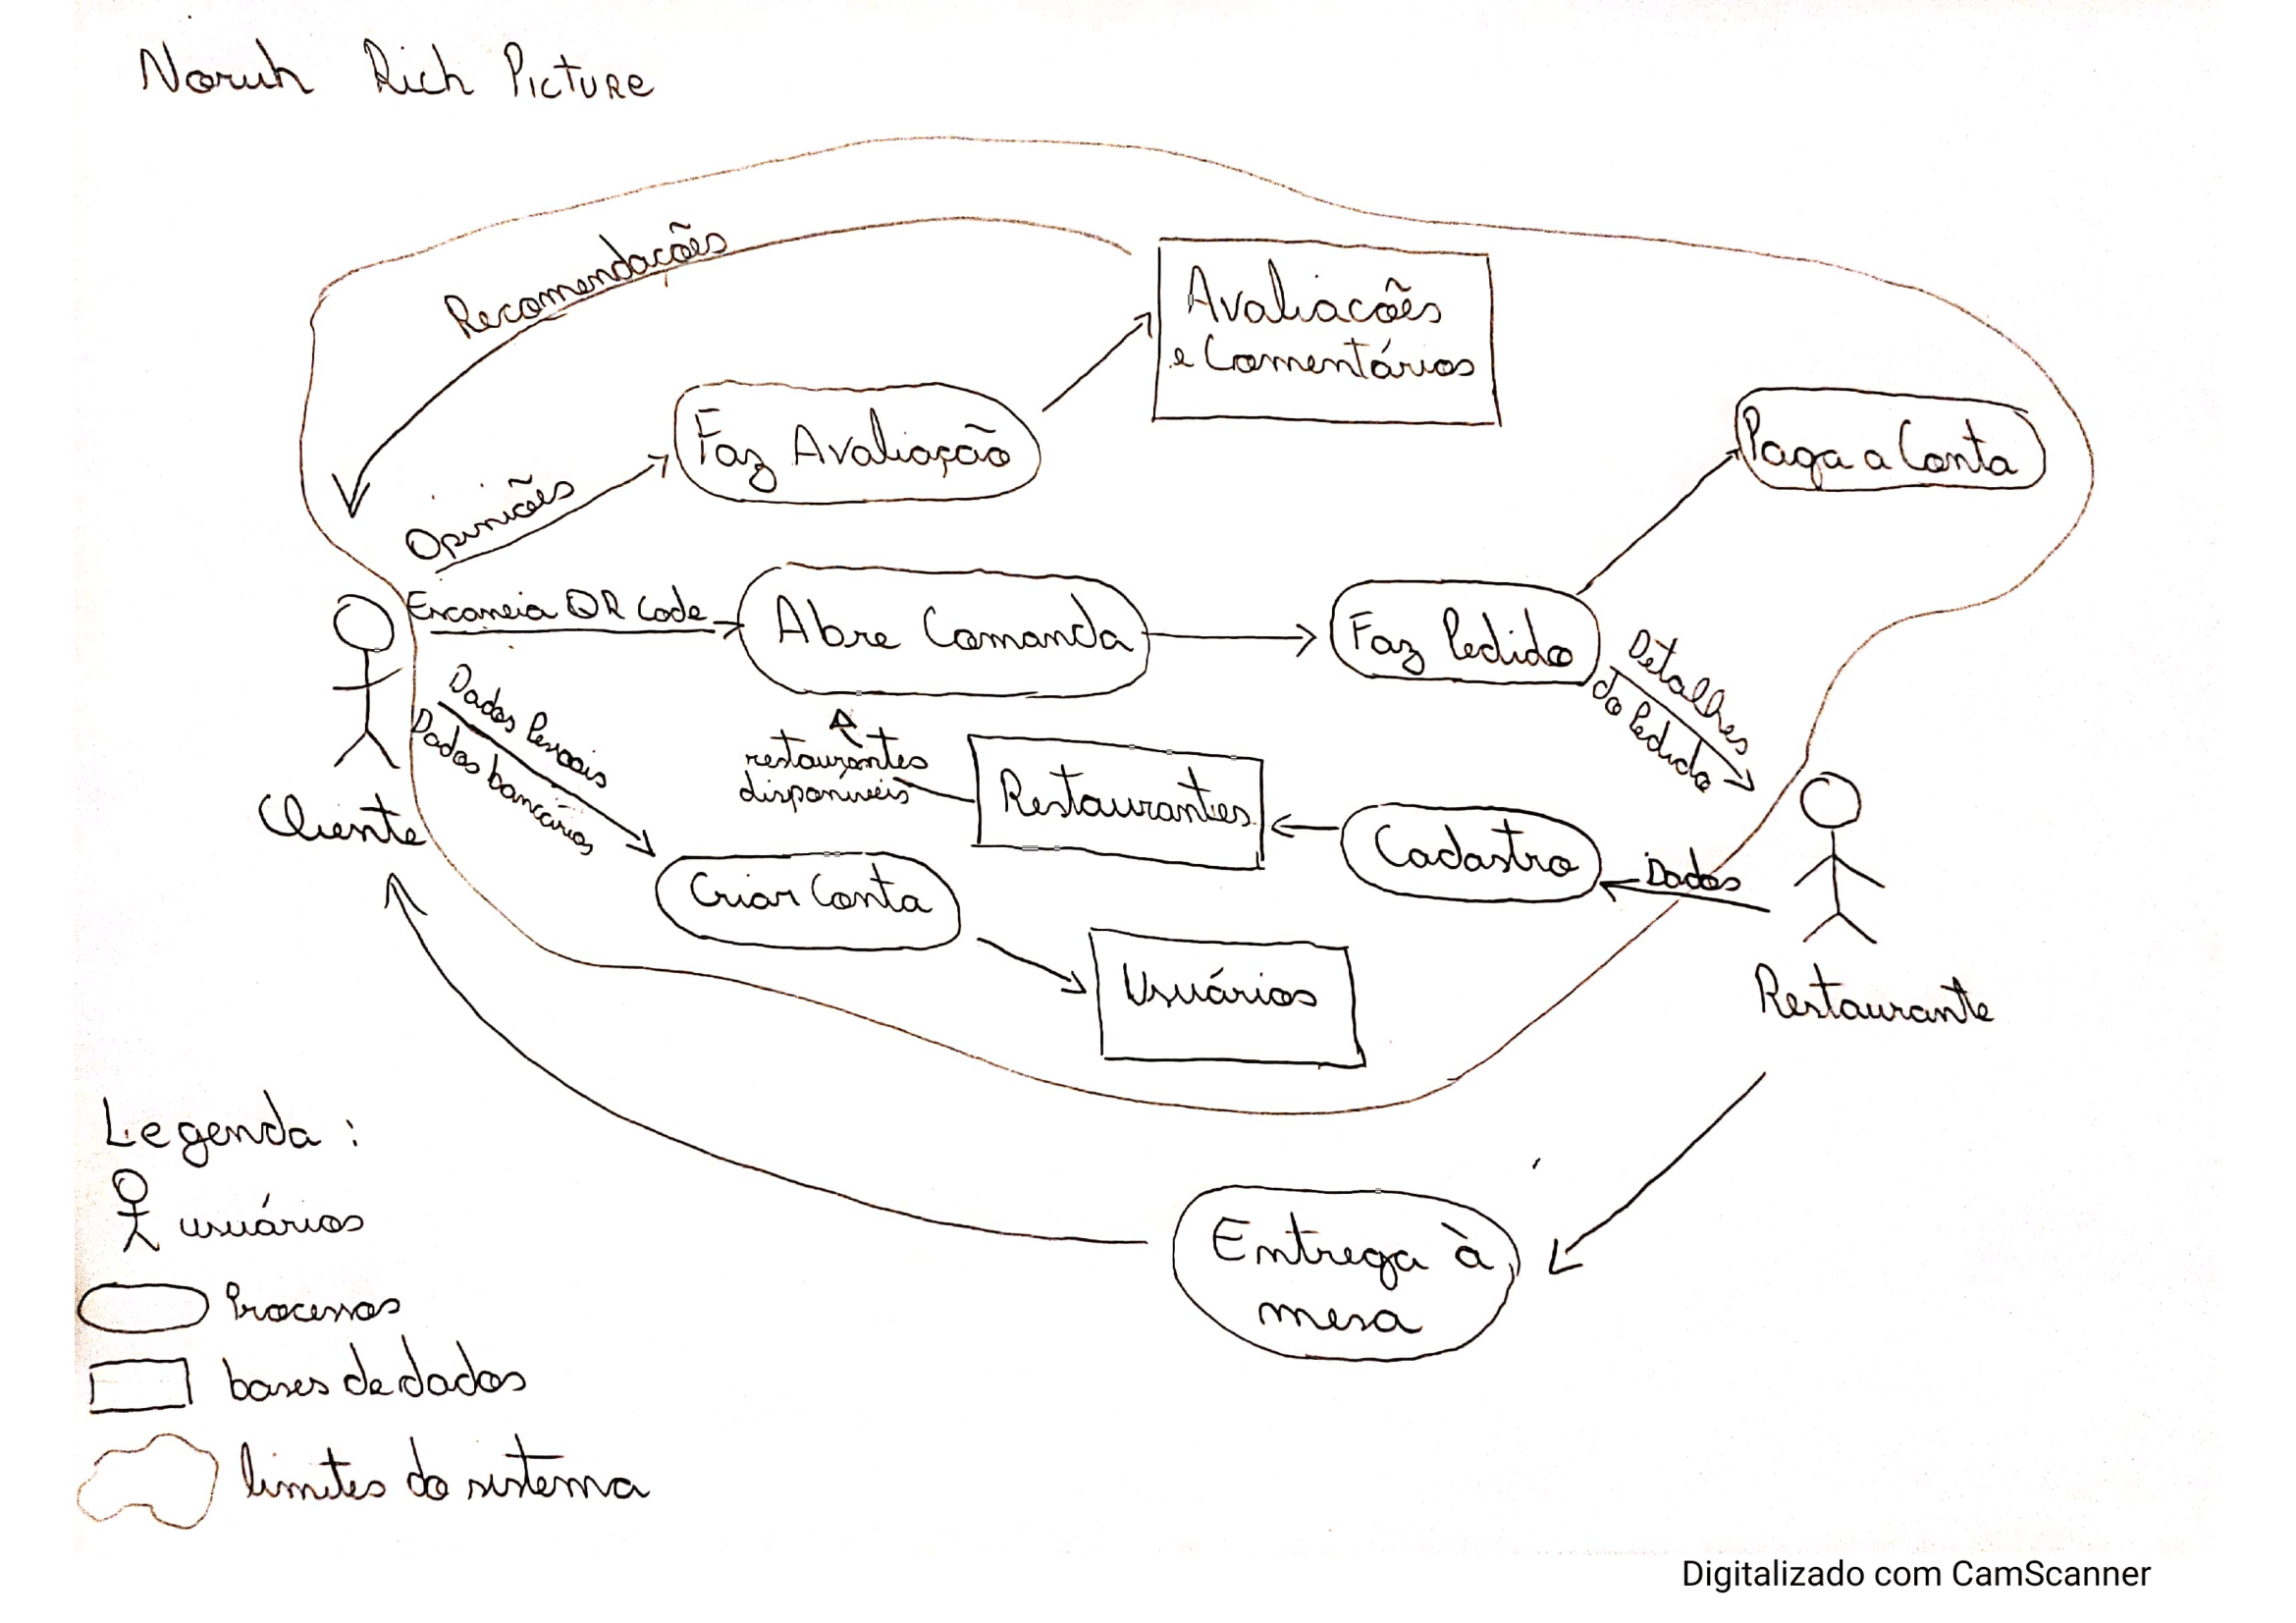 Noruh Rich Picture
Recomendacões
Avaliacões
e Comentários
Faz Avaliação
Paga a Conta
Opiniões
Escaneia QR Code
Abre Comanda
Faz Pedido
Detalhes
do Pedido
Dados Pessoais
Dados bancários
restaurantes
disponíveis
Restaurantes
Cadastro
Dados
Cliente
Criar Conta
Usuários
Restaurante
Entrega à
mesa
Legenda :
usuários
Processos
bases de dados
limites do sistema
Digitalizado com CamScanner